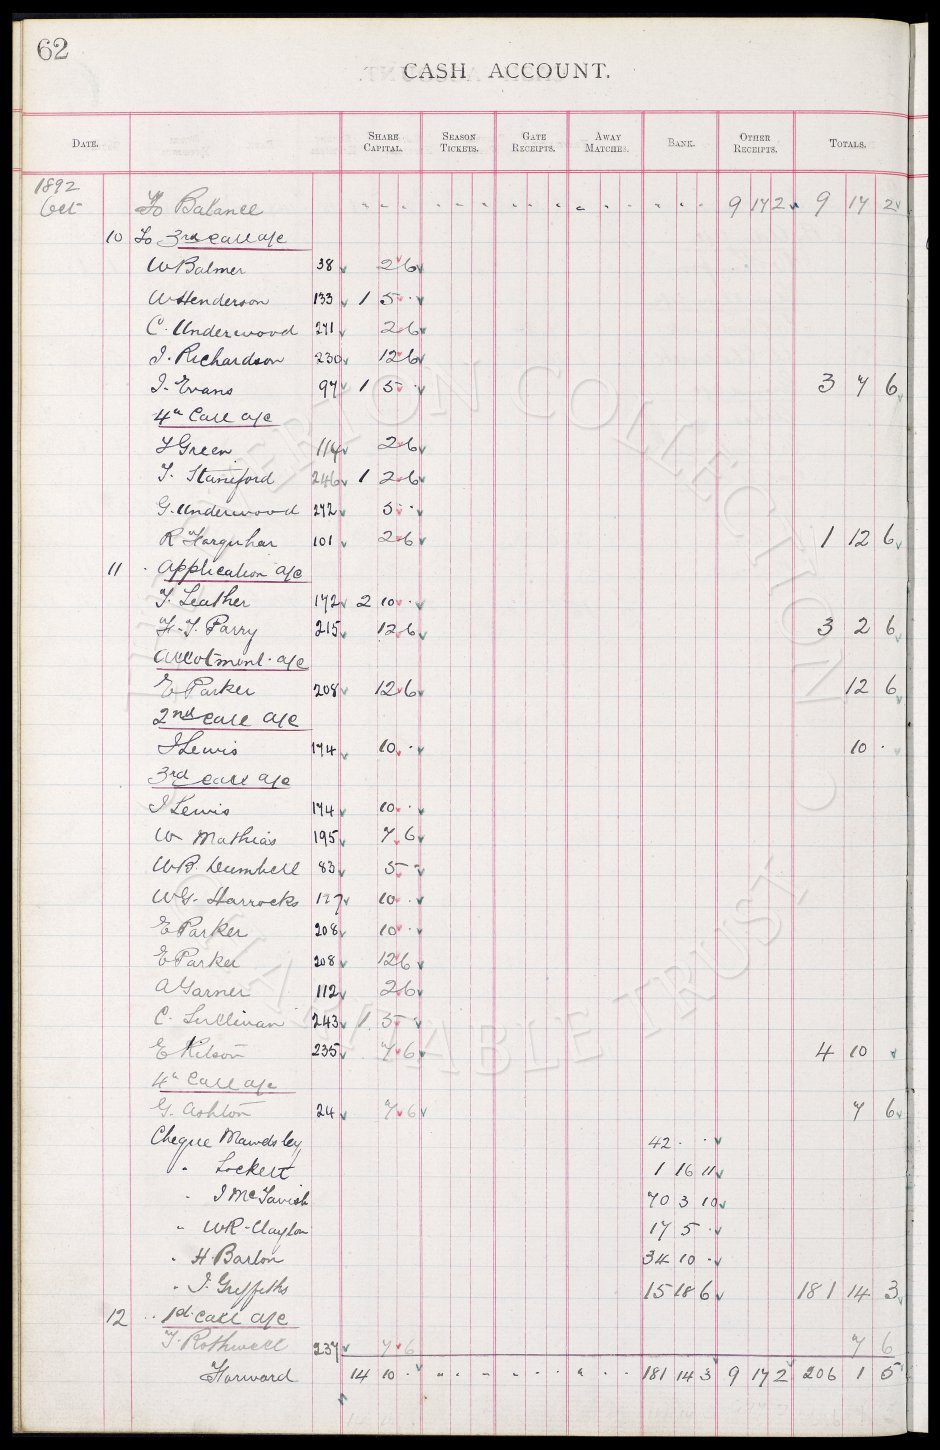 62
CASH ACCOUNT.
DATE. SHARE CAPITAL. SEASON TICKETS. GATE RECEIPTS. AWAY MATCHES. BANK. OTHER RECEIPTS. TOTALS.
1892
Oct To Balance " " " " " " " " " " " " " " " 9 17 2 9 17 2
10 To 3rd Call a/c
W Balmer 38 2 6
W Henderson 133 1 5 ·
C. Underwood 271 2 6
J. Richardson 230 12 6
J. Evans 97 1 5 · 3 7 6
4th Call a/c
J Green 114 2 6
T. Staniford 246 1 2 6
G. Underwood 272 5 ·
R Farquhar 101 2 6 1 12 6
11 · Application a/c
T. Leather 172 2 10 ·
H. T. Parry 215 12 6 3 2 6
Allotment a/c
E Parker 208 12 6 12 6
2nd Call a/c
J Lewis 174 10 · 10 ·
3rd Call a/c
J Lewis 174 10 ·
W Mathias 195 7 6
W B. Dumbell 83 5 -
W G. Harrocks 127 10 ·
E Parker 208 10 ·
E Parker 208 12 6
A Garner 112 2 6
C. Sullivan 243 1 5 ·
E Kitson 235 7 6 4 10
4th Call a/c
G. Ashton 24 7 6 7 6
Cheque Mawdsley 42 · ·
" Lockett 1 16 11
" J McTavish 70 3 10
" W R. Clayton 17 5 ·
" H. Barton 34 10 ·
" J. Griffiths 15 18 6 181 14 3
12 · · 1st Call a/c
T. Rothwell 237 7 6 7 6
Forward 14 10 · " " " " " " " · · 181 14 3 9 17 2 206 1 5
EVERTON COLLECTION
CHARITABLE TRUST